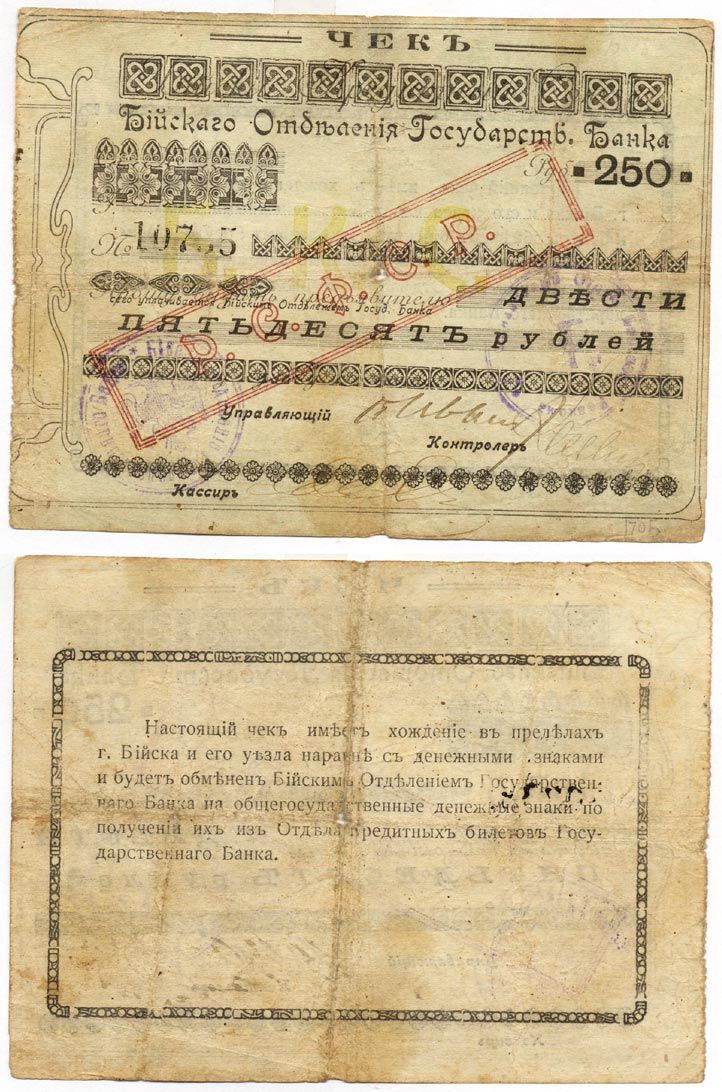 ЧЕКЪ
Бійскаго Отдѣленія Государств. Банка
Руб. 250.
№ 107
предъявителю ДВѢСТИ
сред. Уплачивается Бійскимъ Отдѣленіемъ Госуд. Банка
ПЯТЬДЕСЯТЪ рублей
Р. С. Ф. С. Р.
Управляющій
Контролеръ
Кассиръ
Настоящій чекъ имѣетъ хожденіе въ предѣлахъ
г. Бійска и его уѣзда наравнѣ съ денежными знаками
и будетъ обмѣненъ Бійскимъ Отдѣленіемъ Государствен-
наго Банка на общегосударственные денежные знаки по
полученіи ихъ изъ Отдѣла кредитныхъ билетовъ Госу-
дарственнаго Банка.